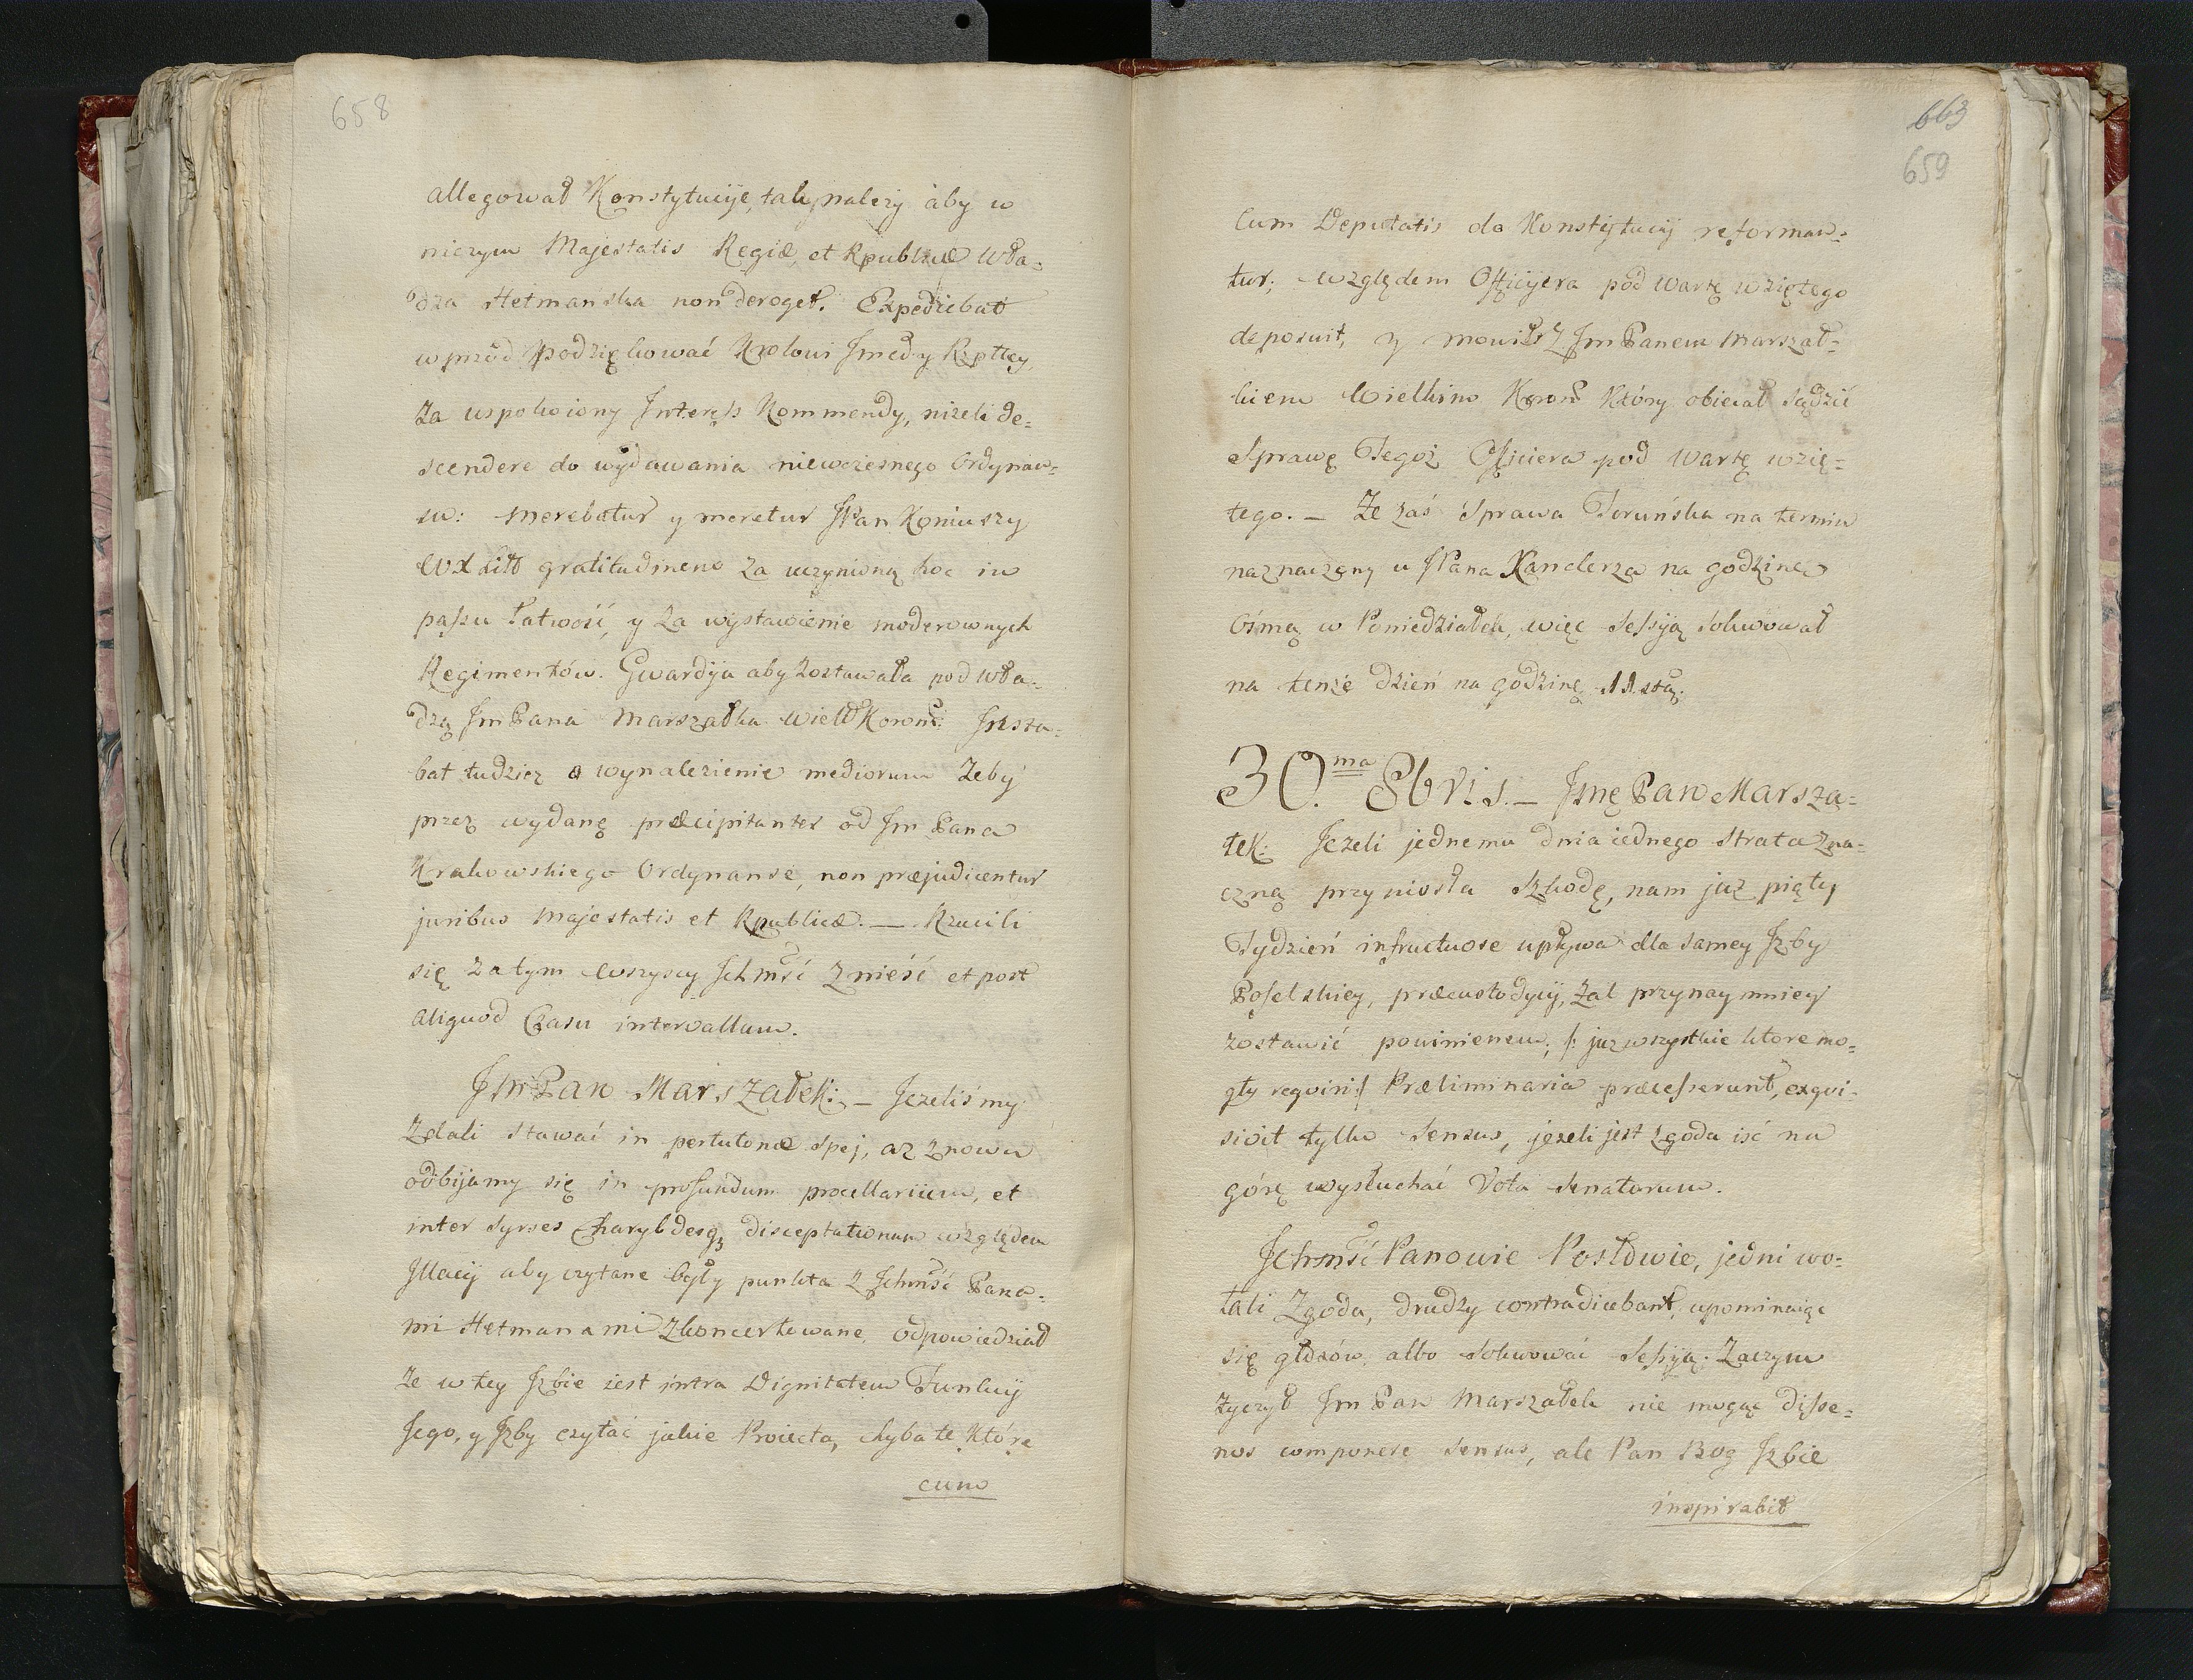 658
allegował Konstytucije, tak należy aby w
niczym Majestatis Regiæ, et Rpublicæ Wła=
dza Hetmanska non deroget. Expediebat
wprzod podziękować Krolowi Jmci y Rzpltey
za uspokoiony Interess Kommendy, niżeli de=
scendere do wydawania niewczesnego Ordynan=
su: merebatur y meretur JPan Koniuszy
WXLitt gratitudinem za uczynioną hoc in
passu łatwość, y za wystawienie moderownych
Regimentów. Gwardyja aby zostawała pod wła=
dzą Jm Pana Marszałka Wielkoronn: Insta=
bat tudziez o wynalezienie mediorum żeby
przez wydanę præcipitanter od Jm Pana
Krakowskiego Ordynanse, non præjudicentur
juribus Majestatis et Rpublicæ. — Rzucili
się zatym wszyscy Jchmść znieść et post
aliquod Czasu intervallum.
Jm Pan Marszałek: — Jezeliśmy
zdali stawać in portu bonæ spej, az znowu
odbijamy się in profundum procellarium, et
inter Syrses Charybdesq3 disceptationum względem
Illacij aby czytane były punkta z Jchmść Pana=
mi Hetmanami zkoncertowane, odpowiedział
Ze w tey Jzbie iest intra Dignitatem Funkcij
Jego, y Jzby czytać jakie Proiecta, chyba te które
cum
663
659
Cum Deputatis do Konstytucij reforman=
tur, względem Officyera pod wartę wziętego
deposuit, y mowił z Jm Panem Marszał=
kiem Wielkim Koron Który obiecał sądzić
Sprawę Tegoż Officiera pod Wartę wzię=
tego. — Że zaś Sprawa Toruńska na termin
naznaczony u JPana Kanclerza na godzinę
Osmą w Poniedziałek, więc Sessyą solwował
na tenże dzień na godzinę 11.stą.
30.ma 8bris. — Jmę Pan Marsza=
łek: Jezeli jednemu dnia iednego strata zna=
czną przyniosła szkodę, nam juz piąty
Tydzień infructuose upływa dla samey Jzby
Poselskiey, præcustodycij, żal przynaymniey
zostawić powinienem, /: juz wszystkie ktore mo=
gły reqviri :/ Præliminaria præcesserunt, exqvi=
sivit tylko Sensus, jezeli jest zgoda iść na
górę wysłuchać Vota Senatorum.
Jchmść Panowie Posłowie, jedni wo=
łali Zgoda, drudzy contradicebant, upominaiąc
się głosów, albo solwować Sessyą. Zaczym
życzył Jm Pan Marszałek nie mogąc disso=
nos componere sensus, ale Pan Bog Jzbie
inspirabit